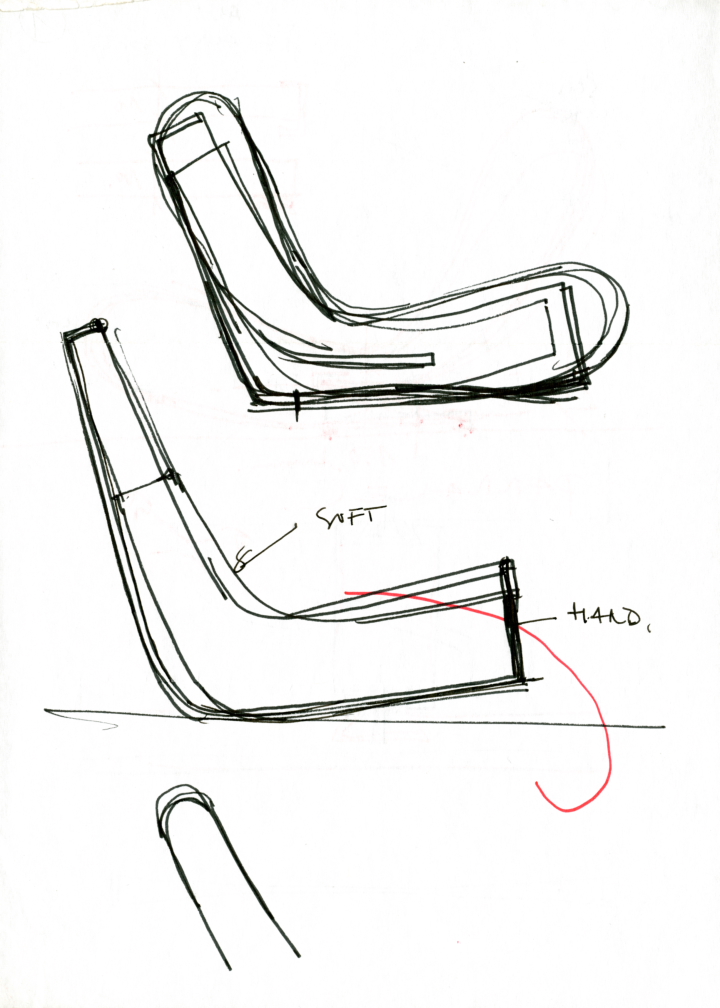 SOFT
HAND.